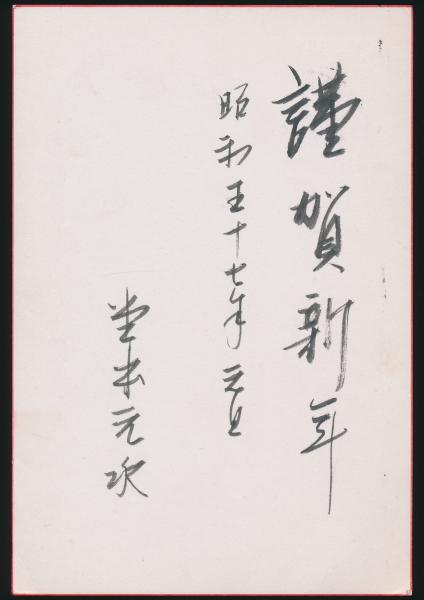 謹賀新年
昭和五十七年 元旦
堂本元次